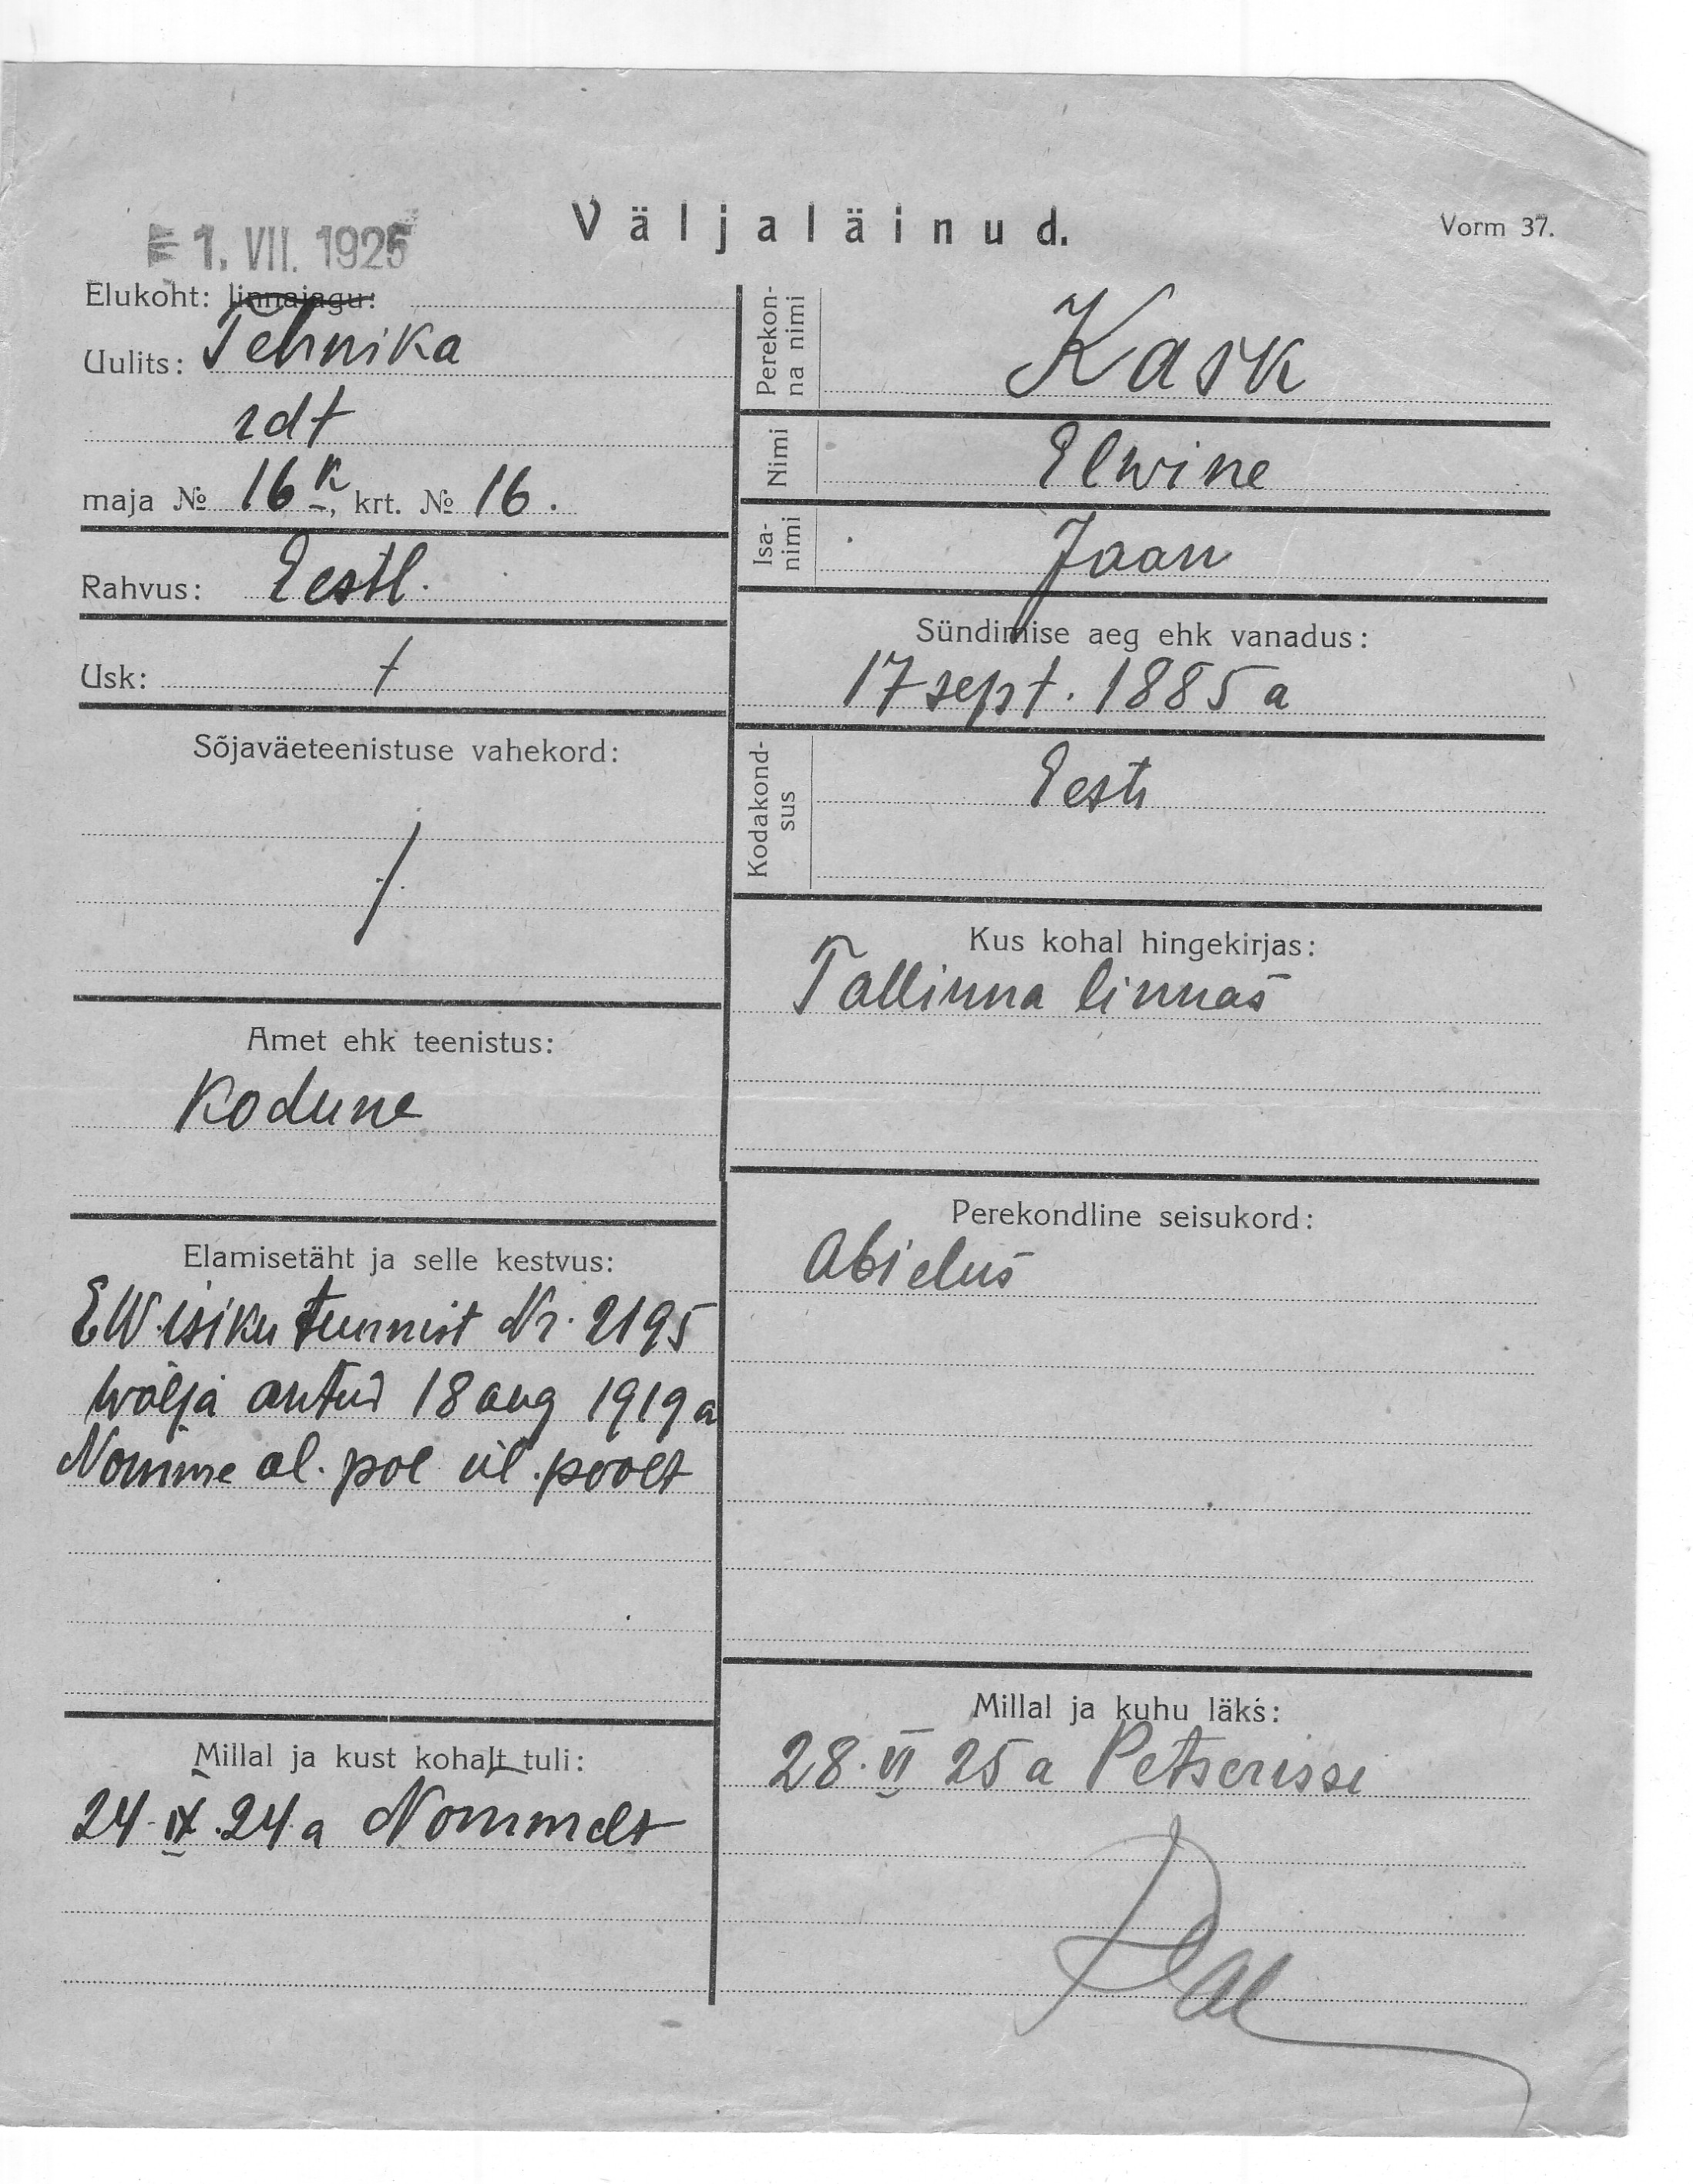 Väljaläinud.
Vorm 37.
1. VII. 1925
Elukoht: linnajagu:
Uulits: Tehnika
maja № 16 K, krt. № 16.
Rahvus: Eestl.
Usk: /
Sõjaväeteenistuse vahekord:
/
Amet ehk teenistus:
Kodune
Elamisetäht ja selle kestvus:
EW. isiku tunnist Nr. 2195
wälja antud 18 aug 1919 a
Nomme al. pol ül. poolt
Millal ja kust kohalt tuli:
24. IX. 24. a Nommelt
Perekon-
na nimi
Kask
Nimi
Elwine
Isa-
nimi
Jaan
Sündimise aeg ehk vanadus:
17 sept. 1885 a
Kodakond-
sus
Eesti
Kus kohal hingekirjas:
Tallinna linnas
Perekondline seisukord:
Abielus
Millal ja kuhu läks:
28. VI 25 a Petserisse